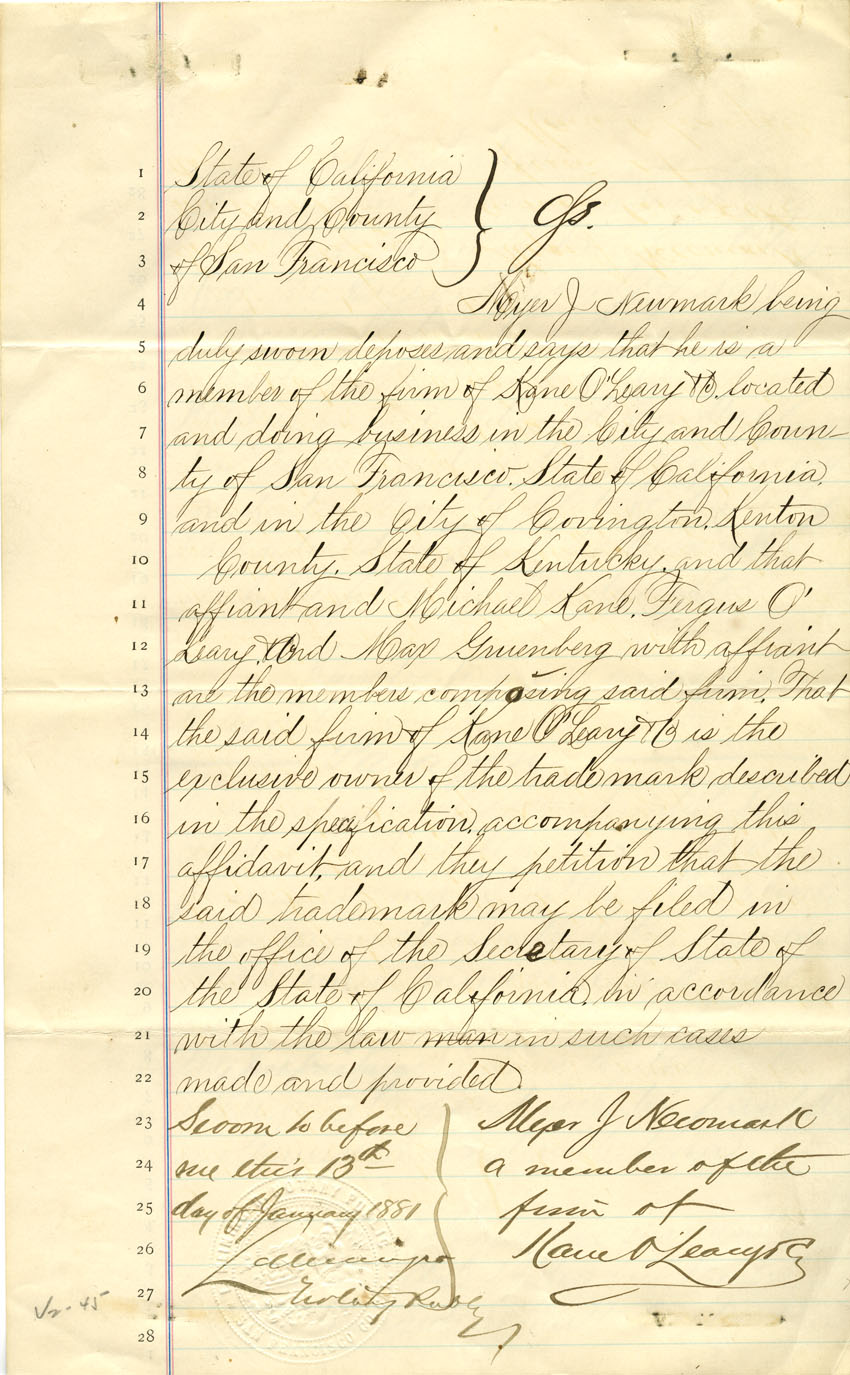 1 State of California
2 City and County } Ss.
3 of San Francisco
4 Myer J Newmark being
5 duly sworn deposes and says that he is a
6 member of the firm of Kane O'Leary & Co. located
7 and doing business in the City and Coun-
8 ty of San Francisco. State of California.
9 and in the City of Covington. Kenton
10 County. State of Kentucky. and that
11 affiant and Michael Kane. Fergus O'
12 Leary. and Max Gruenberg with affiant
13 are the members composing said firm. That
14 the said firm of Kane O'Leary & Co is the
15 exclusive owner of the trade mark described
16 in the specification. accompanying this
17 affidavit. and they petition that the
18 said trademark may be filed in
19 the office of the Secretary of State of
20 the State of California. in accordance
21 with the law man in such cases
22 made and provided.
23 Sworn to before } Myer J Newmark
24 me this 13th a member of the
25 day of January 1881 firm of
26 Kane O'Leary & Co
27 Notary Public
28